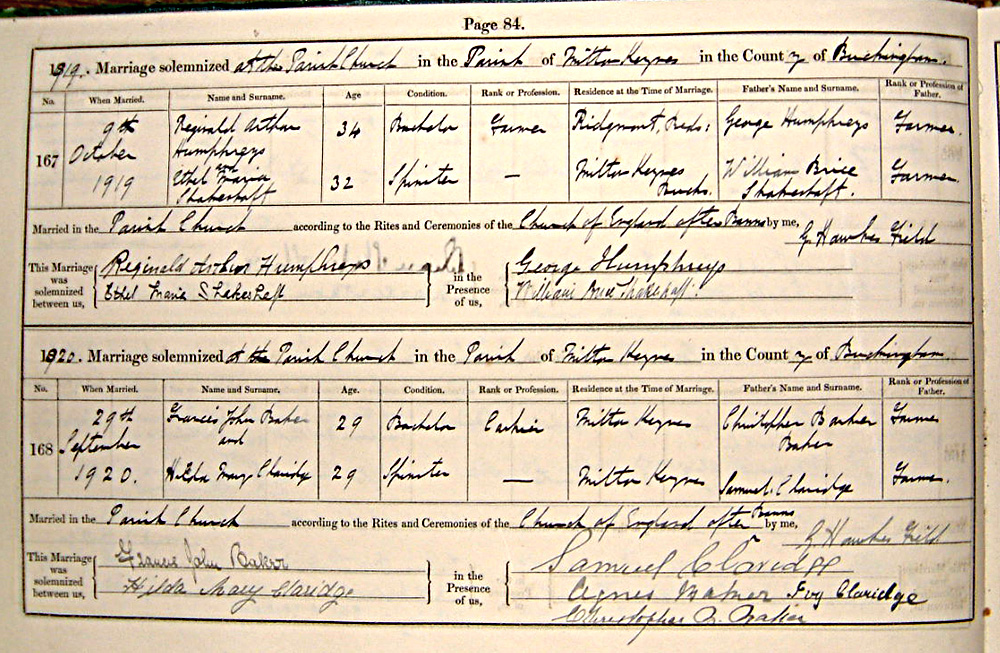 Page 84.
1919. Marriage solemnized at the Parish Church in the Parish of Milton Keynes in the County of Buckingham.
No. When Married. Name and Surname. Age Condition. Rank or Profession. Residence at the Time of Marriage. Father's Name and Surname. Rank or Profession of Father.
167 9th October 1919 Reginald Arthur Humphreys 34 Bachelor Farmer Ridgmont, Beds: George Humphreys Farmer.
Ethel Maria Shakeshaft 32 Spinster — Milton Keynes Bucks. William Brice Shakeshaft. Farmer.
Married in the Parish Church according to the Rites and Ceremonies of the Church of England after Banns by me, G Hawkes Field
This Marriage was solemnized between us, Reginald Arthur Humphreys in the Presence of us, George Humphreys
Ethel Maria Shakeshaft William Brice Shakeshaft.
1920. Marriage solemnized at the Parish Church in the Parish of Milton Keynes in the County of Buckingham.
No. When Married. Name and Surname. Age. Condition. Rank or Profession. Residence at the Time of Marriage. Father's Name and Surname. Rank or Profession of Father.
168 29th September 1920. Francis John Baker and 29 Bachelor Milton Keynes Christopher Barker Baker Farmer
Hilda Mary Claridge 29 Spinster — Milton Keynes Samuel Claridge Farmer.
Married in the Parish Church according to the Rites and Ceremonies of the Church of England after Banns by me, G Hawkes Field
This Marriage was solemnized between us, Francis John Baker in the Presence of us, Samuel Claridge
Hilda Mary Claridge Agnes Baker Ivy Claridge
Christopher B. Baker